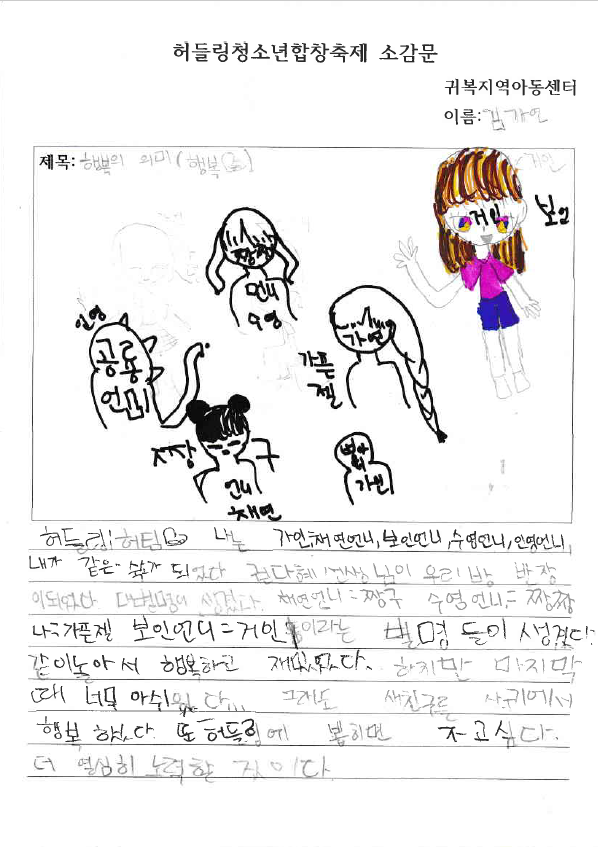 허들링청소년합창축제 소감문
귀복지역아동센터
이름: 김가연
제목: 행복의 의미 (행복)
거인
거인
보인
짱짱
언니
수영
인영
공룡
언니
가연
가픈
젤
짱
구
언니
채연
가인
허들링 허팀 나는 가인, 채연언니, 보인언니, 수영언니, 인영언니,
내가 같은 숙소가 되었다 권다혜 선생님이 우리 방 반장
이되었다. 생겼다. 채연언니=짱구 수영언니=짱짱
나=가픈젤 보인언니=거인 이라는 별명들이 생겼다.
같이놀아서 행복하고 재밌었다. 하지만 마지막
때 너무 아쉬웠다... 그래도 새친구를 사귀에서
행복하였다. 또 허들링에 뽑히면 가고싶다.
더 열심히 노력할 것이다